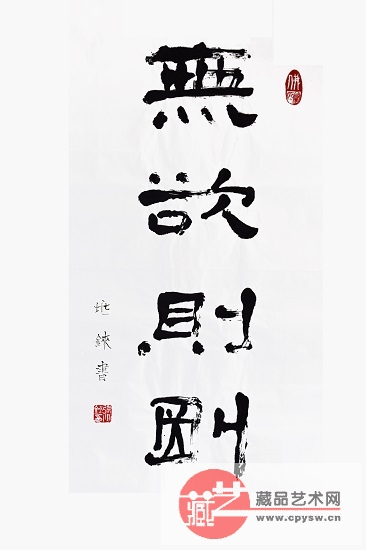 無欲則剛
書
藏艺
藏品艺术网
www.cpysw.cn